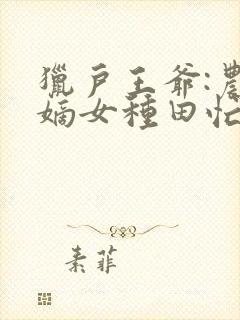 獵戶王爺:農
嫡女種田忙
素菲